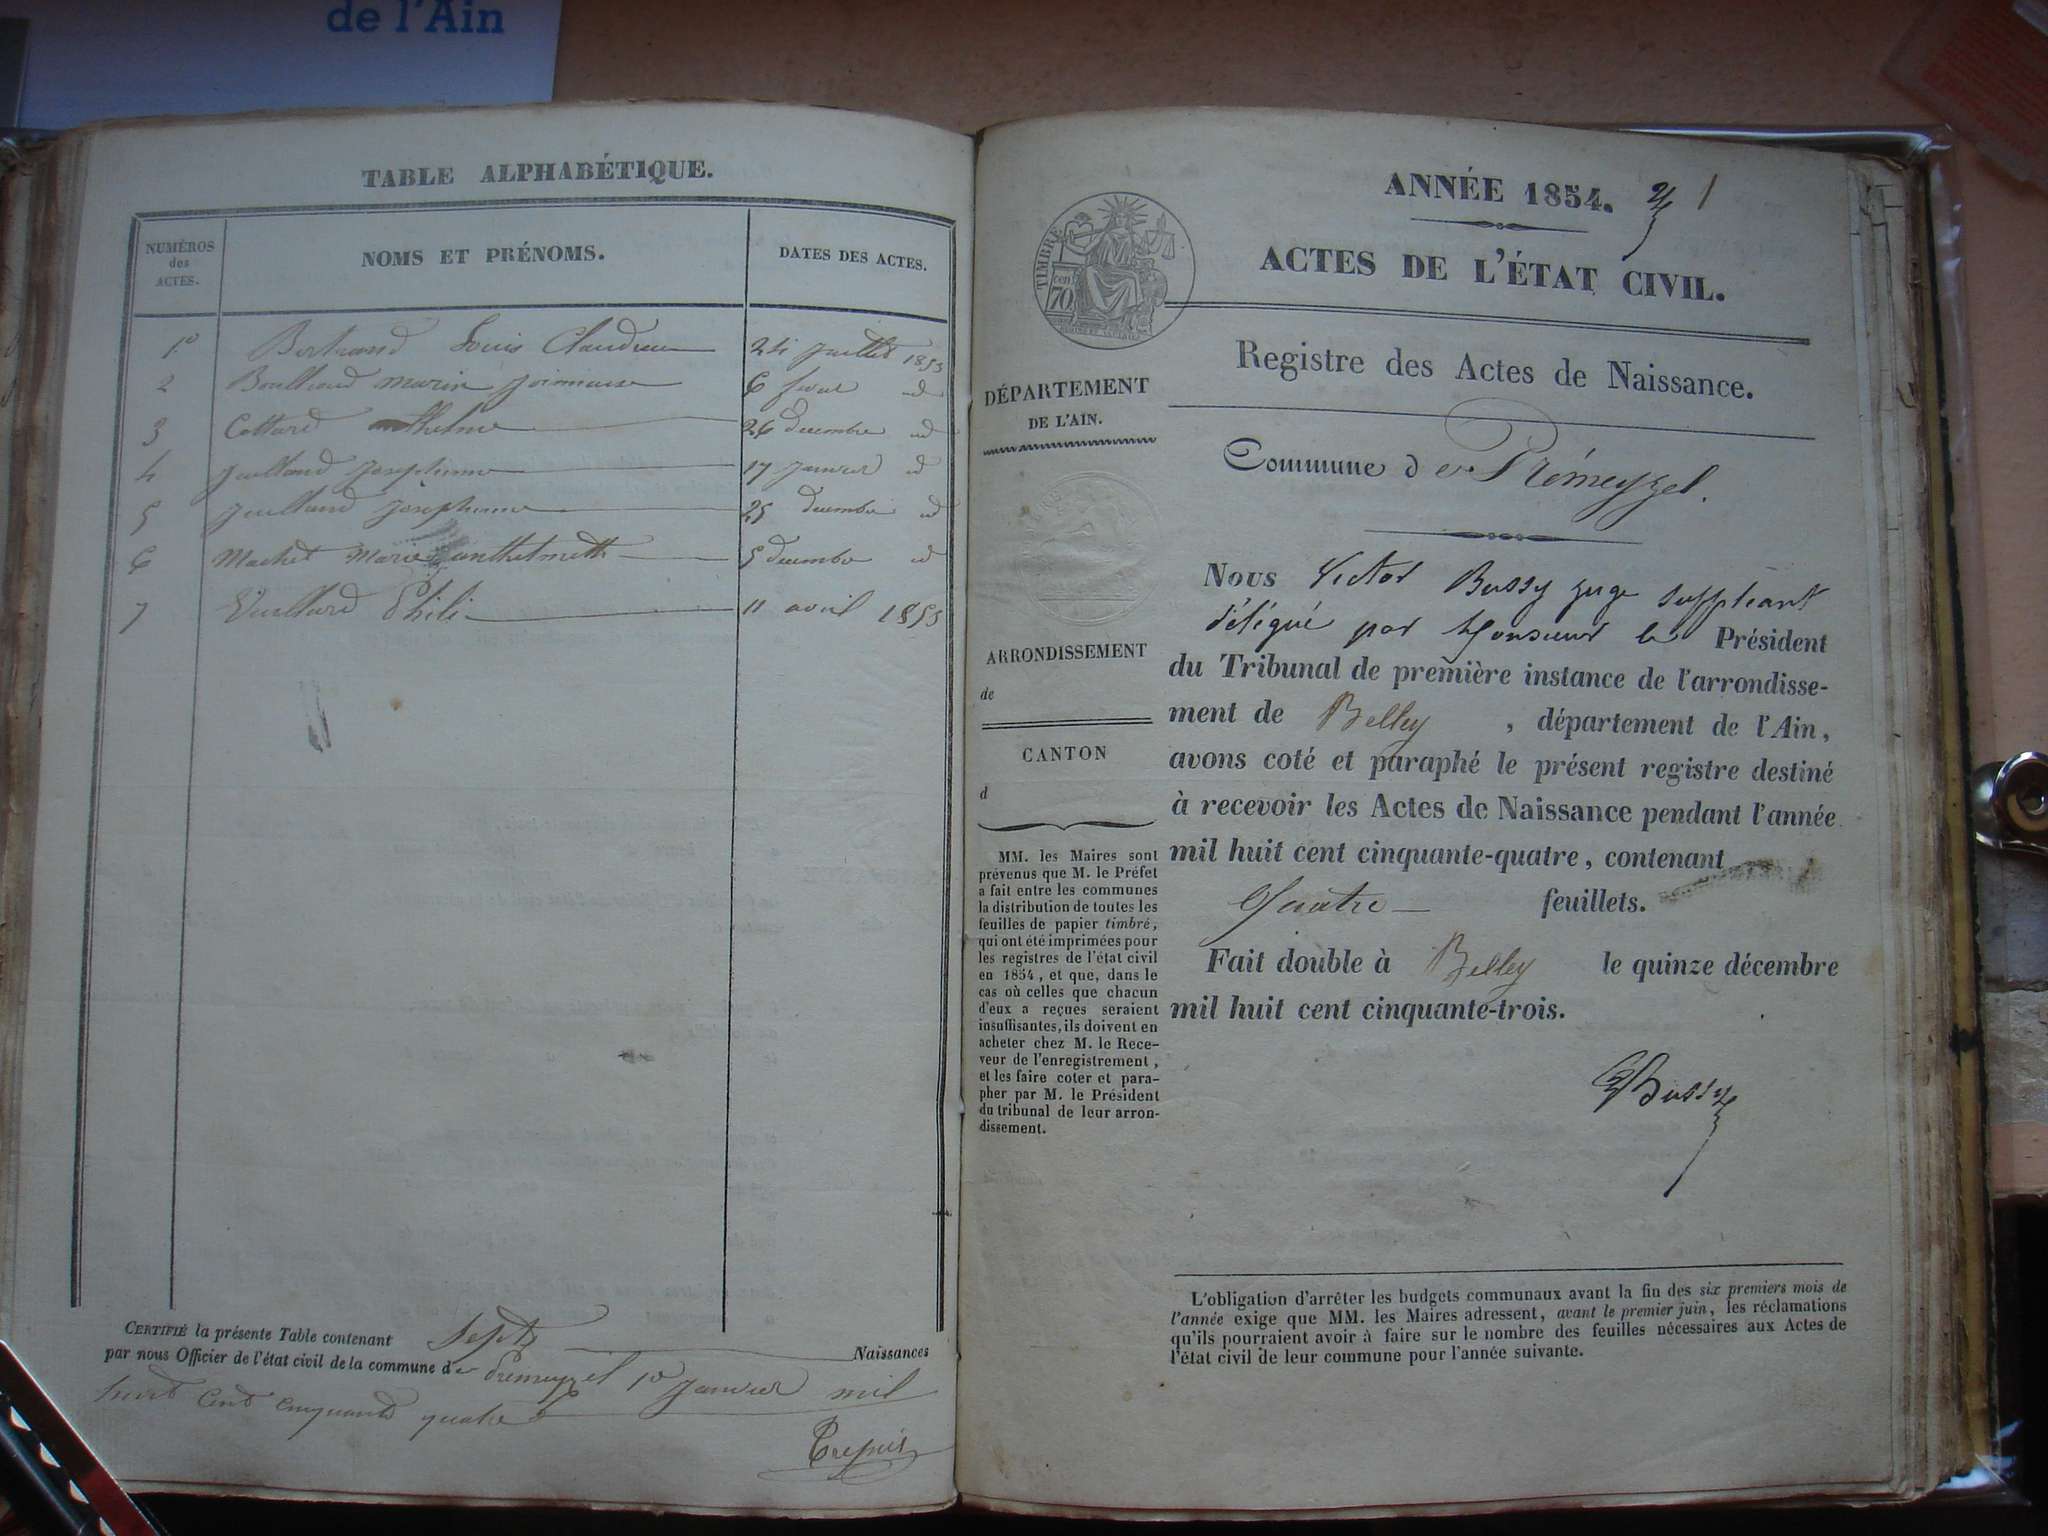 de l'Ain
TABLE ALPHABÉTIQUE.
NUMÉROS des ACTES.
NOMS ET PRÉNOMS.
DATES DES ACTES.
1º Bertrand Louis Claudien 24 juillet 1853
2 Boulliand marin 6 id
3 Cottard anthelme 26 decembre id
4 Juilland Josephine 17 janvier id
5 Juilland Josephine 25 decembre id
6 Machet Marie anthelmette 5 decembre id
7 Vuillard Phili 11 avril 1853
CERTIFIÉ la présente Table contenant Sept Naissances
par nous Officier de l'état civil de la commune de Premeyzel 1er Janvier mil
huit cent cinquante quatre
Trepier
ANNÉE 1854. 1
ACTES DE L'ÉTAT CIVIL.
TIMBRE
70 cen
Registre des Actes de Naissance.
DÉPARTEMENT
DE L'AIN.
Commune de Prémeyzel.
ARRONDISSEMENT
de
CANTON
d
MM. les Maires sont
prévenus que M. le Préfet
a fait entre les communes
la distribution de toutes les
feuilles de papier timbré,
qui ont été imprimées pour
les registres de l'état civil
en 1854, et que, dans le
cas où celles que chacun
d'eux a reçues seraient
insuffisantes, ils doivent en
acheter chez M. le Rece-
veur de l'enregistrement,
et les faire coter et para-
pher par M. le Président
du tribunal de leur arron-
dissement.
Nous Victor Bussy juge suppléant
délégué par Monsieur le Président
du Tribunal de première instance de l'arrondisse-
ment de Belley, département de l'Ain,
avons coté et paraphé le présent registre destiné
à recevoir les Actes de Naissance pendant l'année
mil huit cent cinquante-quatre, contenant
Quatre feuillets.
Fait double à Belley le quinze décembre
mil huit cent cinquante-trois.
VBussy
L'obligation d'arrêter les budgets communaux avant la fin des six premiers mois de
l'année exige que MM. les Maires adressent, avant le premier juin, les réclamations
qu'ils pourraient avoir à faire sur le nombre des feuilles nécessaires aux Actes de
l'état civil de leur commune pour l'année suivante.